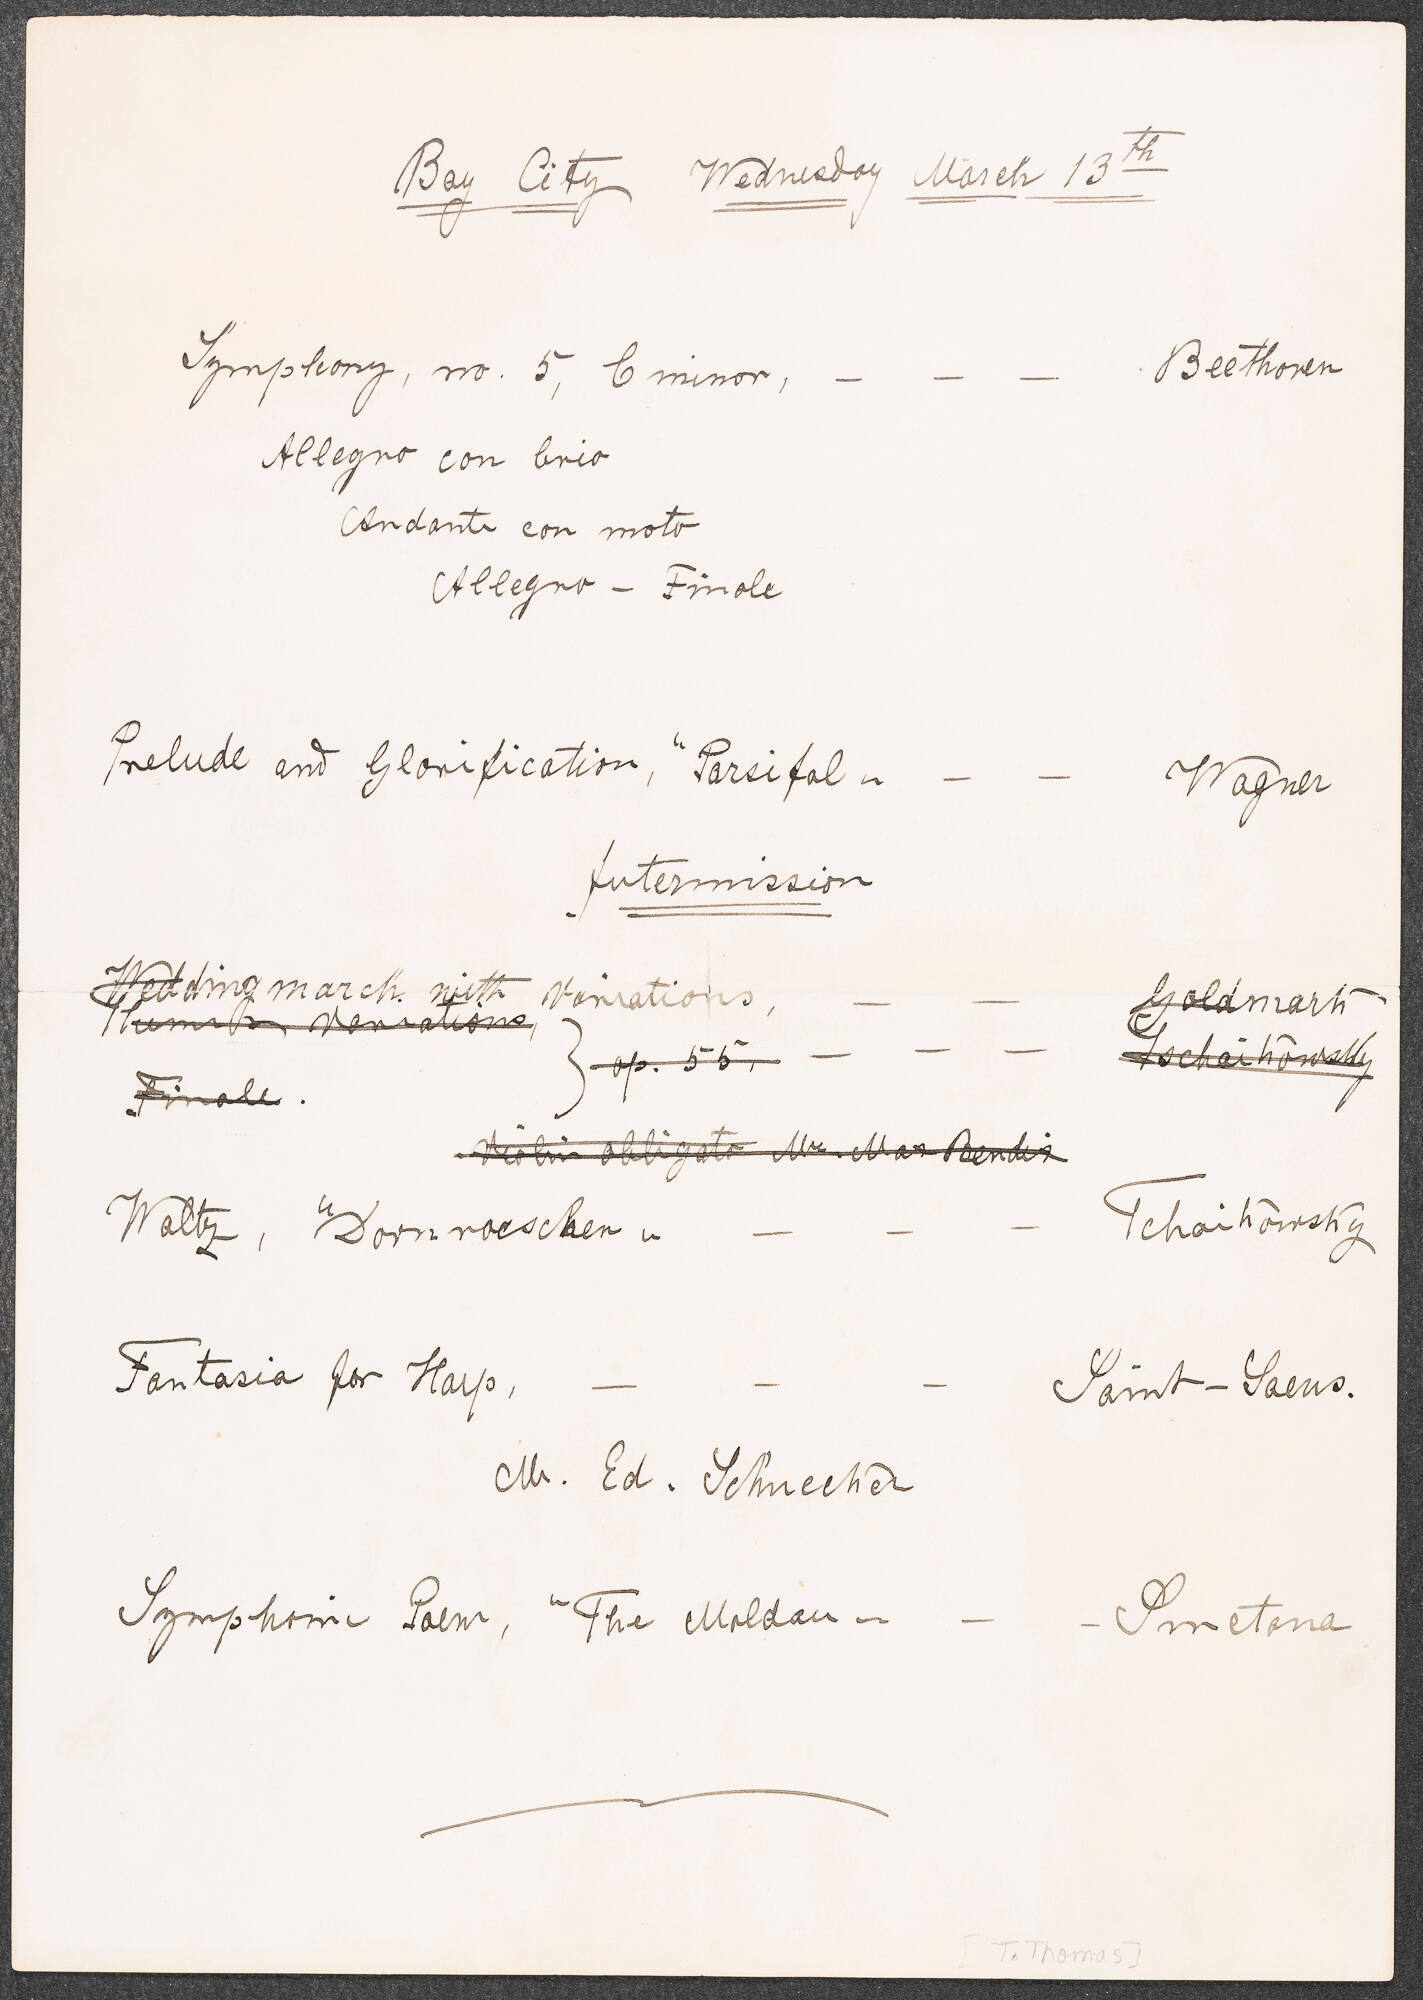 Bay City Wednesday March 13th
Symphony, no. 5, C minor, — — — Beethoven
Allegro con brio
Andante con moto
Allegro – Finale
Prelude and Glorification, "Parsifal" — — Wagner
Intermission
Wedding march with variations, — — Goldmark
Theme & Variations, op. 55, — — — Tschaikowsky
Finale.
Violin obligato Mr. Max Bendix
Waltz, "Dornroeschen" — — — Tchaikowsky
Fantasia for Harp, — — — Saint-Saens.
Mr. Ed. Schuecker
Symphonic Poem, "The Moldau" — – Smetana
[T. Thomas]